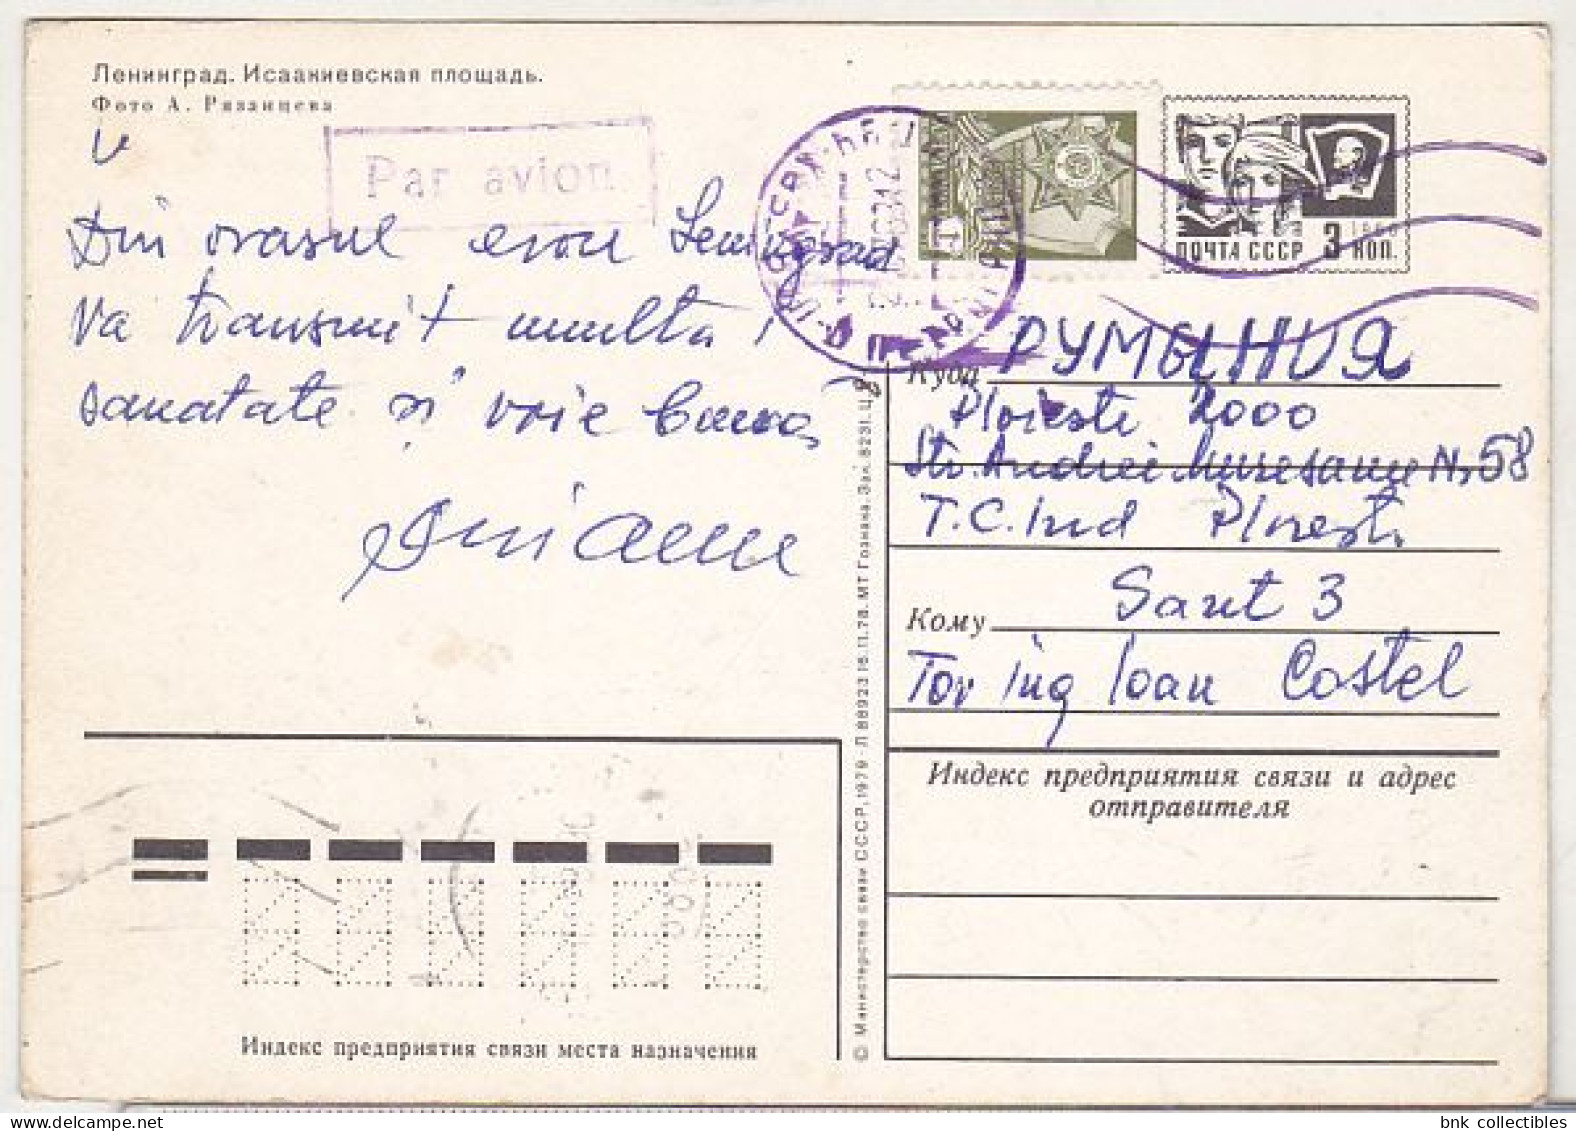 Ленинград. Исаакиевская площадь.
Фото А. Рязанцева
Par avion
Din orasul erou Leningrad
Va transmit multa
sanatate si voie buna,
ПОЧТА СССР 3 КОП.
1966
Куда РУМЫНИЯ
Ploiesti 2000
Str. Andrei Muresanu Nr 58
T.C. Ind Ploiesti
Кому Sant 3
Tov ing Ioan Costel
Индекс предприятия связи и адрес
отправителя
© Министерство связи СССР, 1979 - Л 88923 15.11.78. МТ Гознака. Зак. 8231. Ц.
Индекс предприятия связи места назначения
bnk collectibles